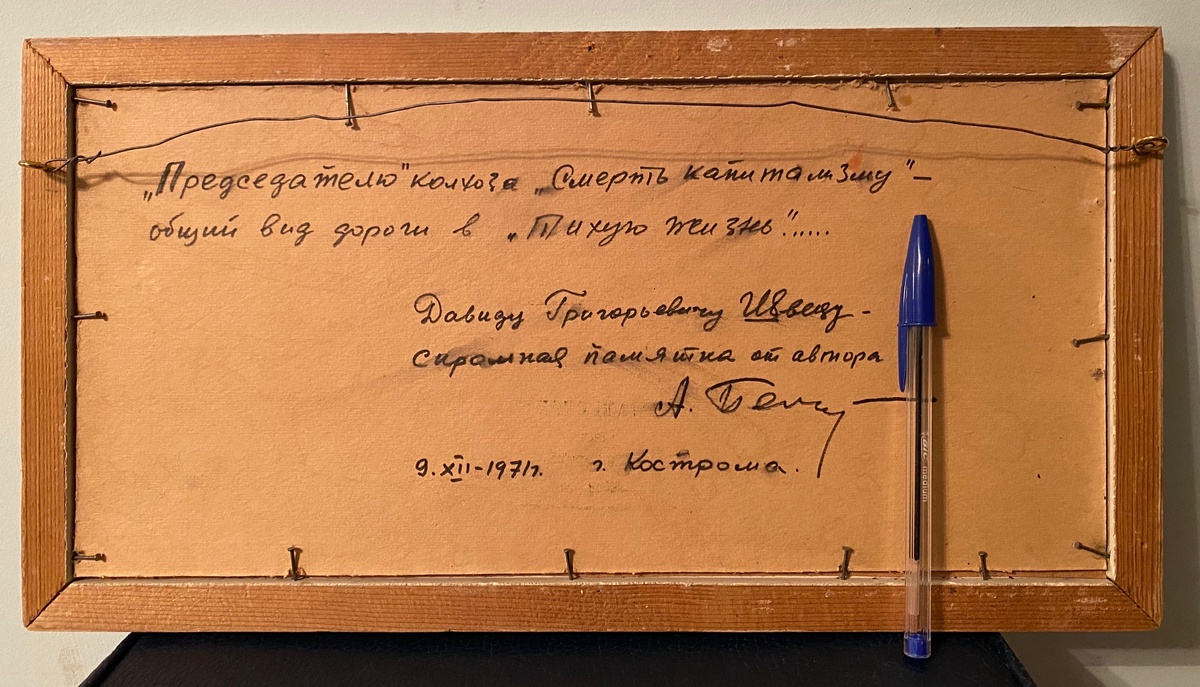 „Председателю" колхоза „Смерть капитализму" –
общий вид дороги в „Тихую жизнь".....
Давиду Григорьевичу Швецу -
скромная памятка от автора
А.
9.XII-1971г. г. Кострома.